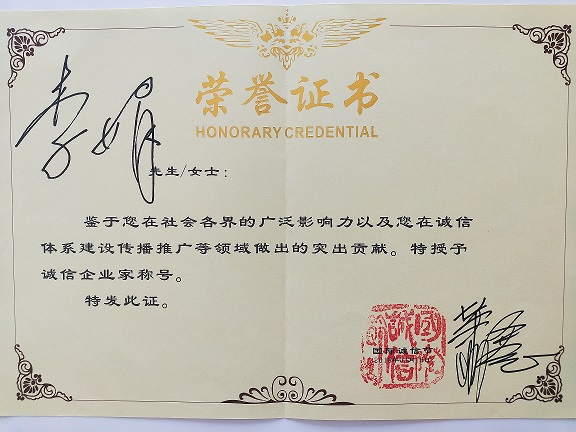 荣誉证书
HONORARY CREDENTIAL
李娟
先生/女士：
鉴于您在社会各界的广泛影响力以及您在诚信
体系建设传播推广等领域做出的突出贡献。特授予
诚信企业家称号。
特发此证。
国际诚信节